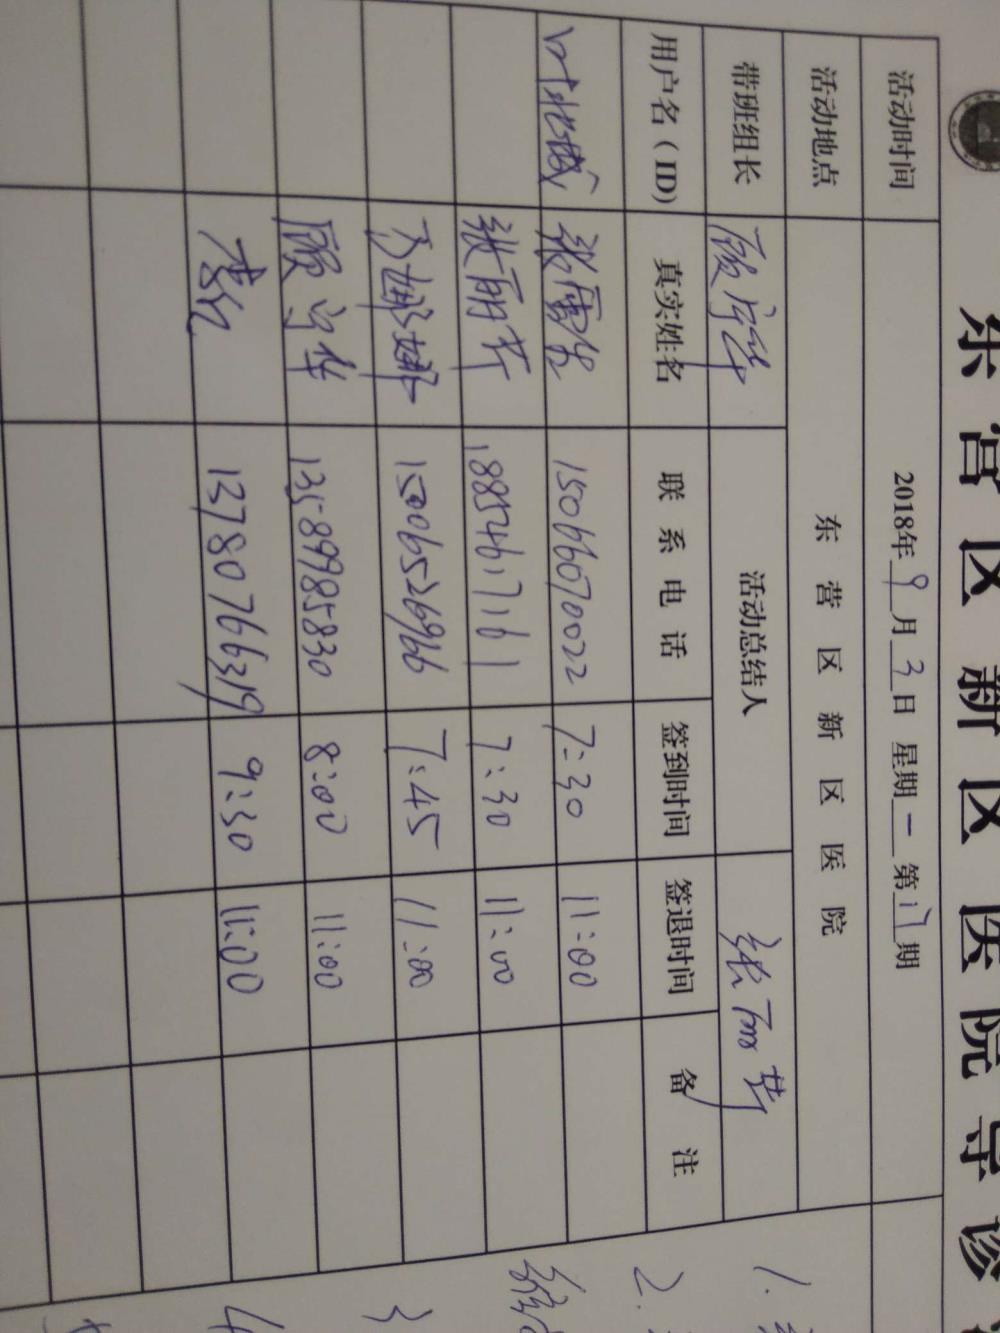 东营区新区医院导诊
活动时间 2018年9月3日 星期一 第17期
活动地点 东营区新区医院
带班组长 顾守华 活动总结人 张丽芹
用户名（ID) 真实姓名 联系电话 签到时间 签退时间 备注
叶北城 张 15066070022 7:30 11:00
张丽芹 18854617161 7:30 11:00
娜娜 15006526966 7:45 11:00
顾守华 13589985830 8:00 11:00
李红 13780766319 9:30 11:00
1.
2.
3
4